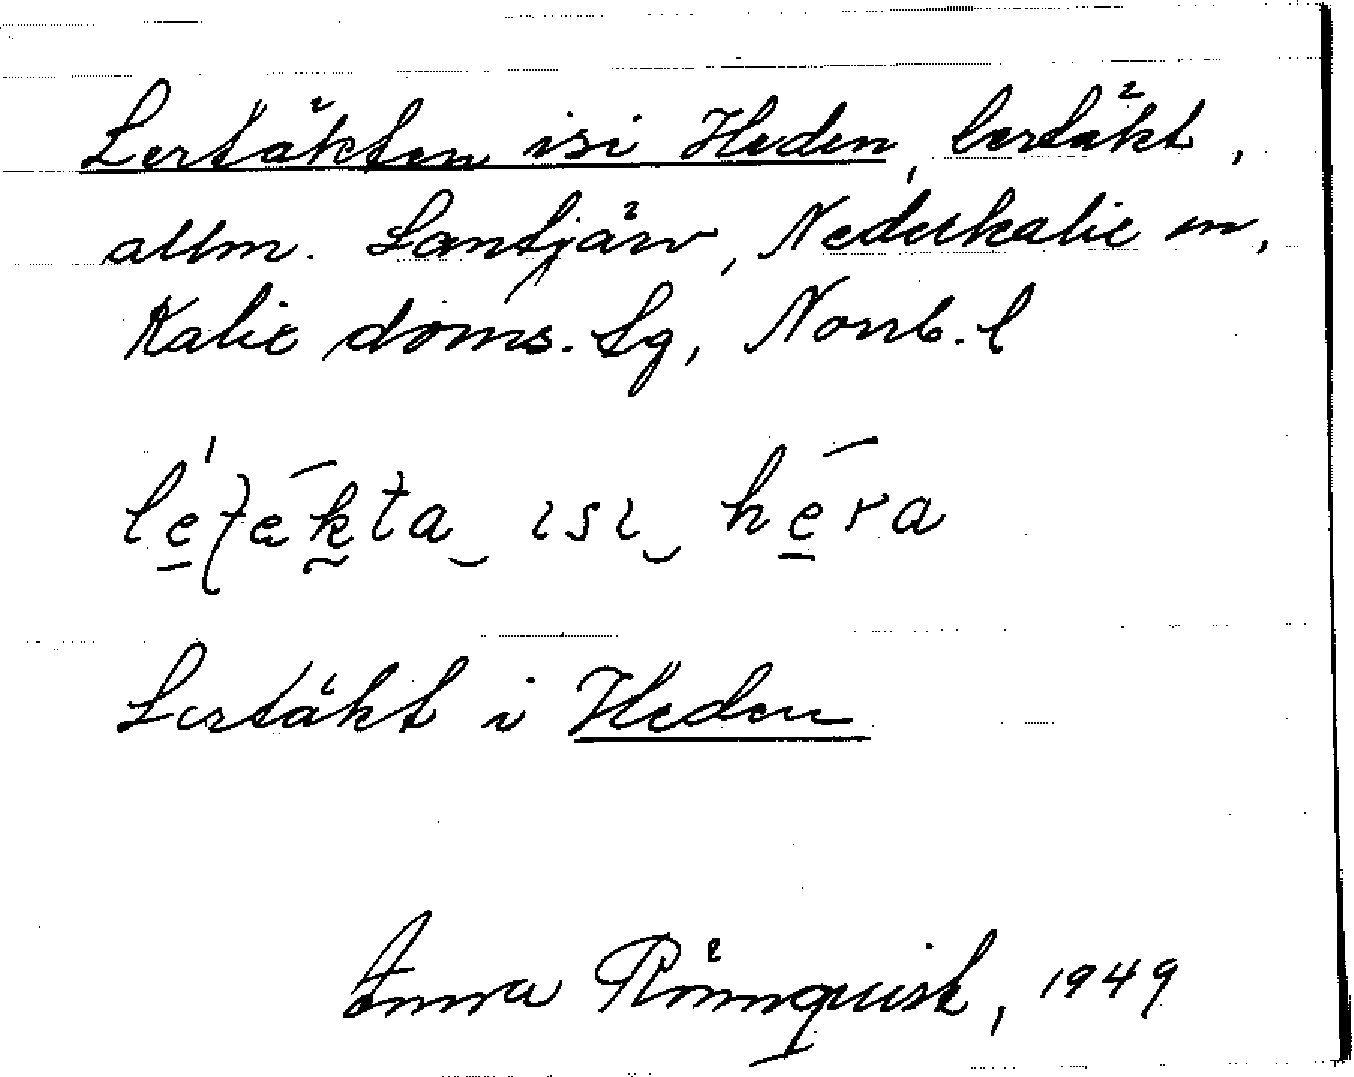 Lertäkten isi Heden, lertäkt,
allm. Lantjärv, Nederkalix sn,
Kalix doms. Sg, Norrb. l
isi hera
Lertäkt i Heden
Anna Rönnquist, 1949